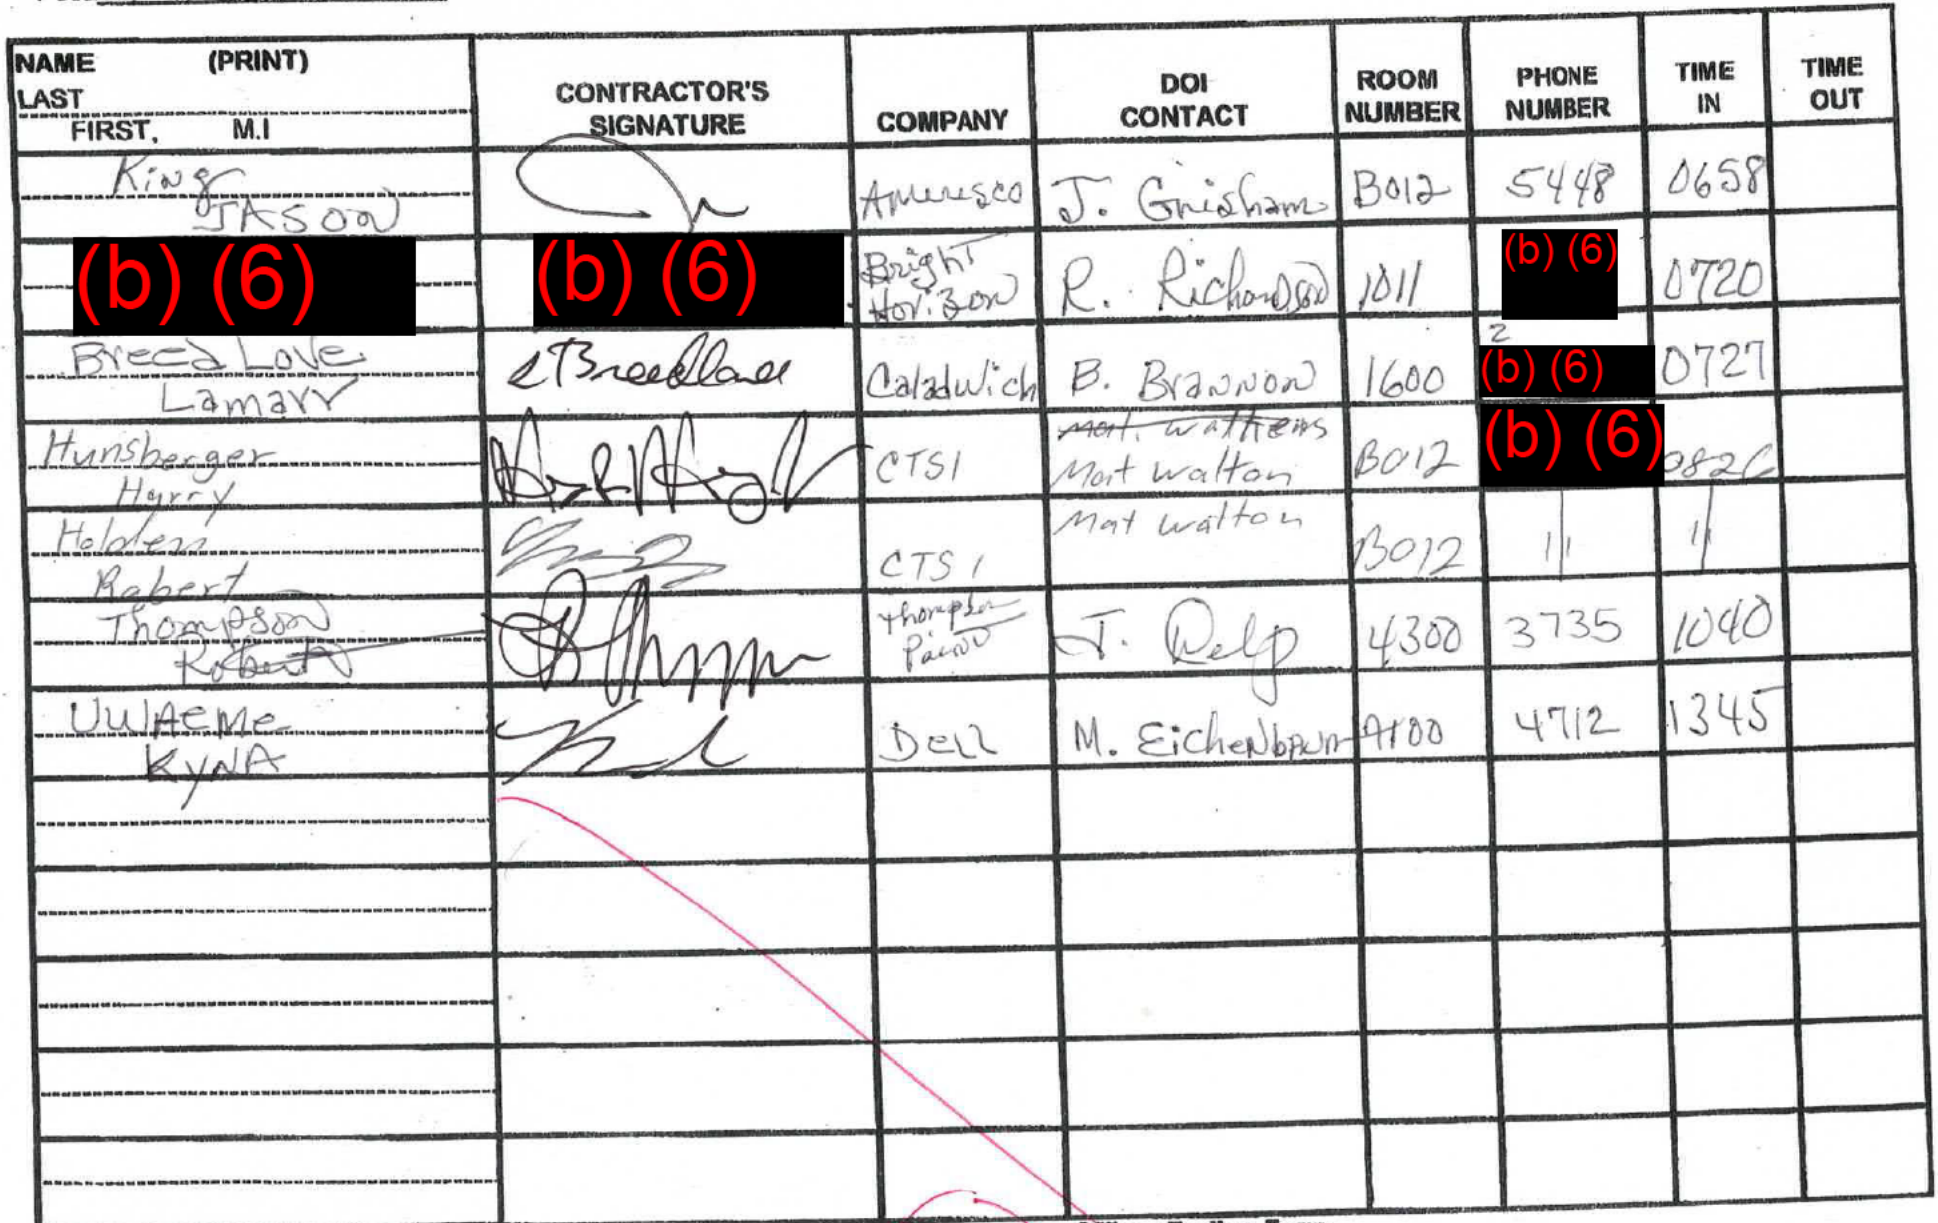 NAME (PRINT)
LAST
FIRST, M.I
CONTRACTOR'S
SIGNATURE
COMPANY
DOI
CONTACT
ROOM
NUMBER
PHONE
NUMBER
TIME
IN
TIME
OUT
King
JASON
Ameresco
J. Grisham
B012
5448
0658
(b) (6)
(b) (6)
Bright
Horizon
R. Richardson
1011
(b) (6)
0720
Breed Love
Lamarr
LBreedlove
Caladwich
B. Brannon
1600
2
(b) (6)
0727
Hunsberger
Harry
CTSI
Mat Walton
B012
(b) (6)
0826
Holden
Robert
CTSI
Mat Walton
B012
11
11
Thompson
Robert
Thompson
Paint
J. Delp
4300
3735
1040
UWAEME
KYNA
Dell
M. Eichenbaum
4712
1345